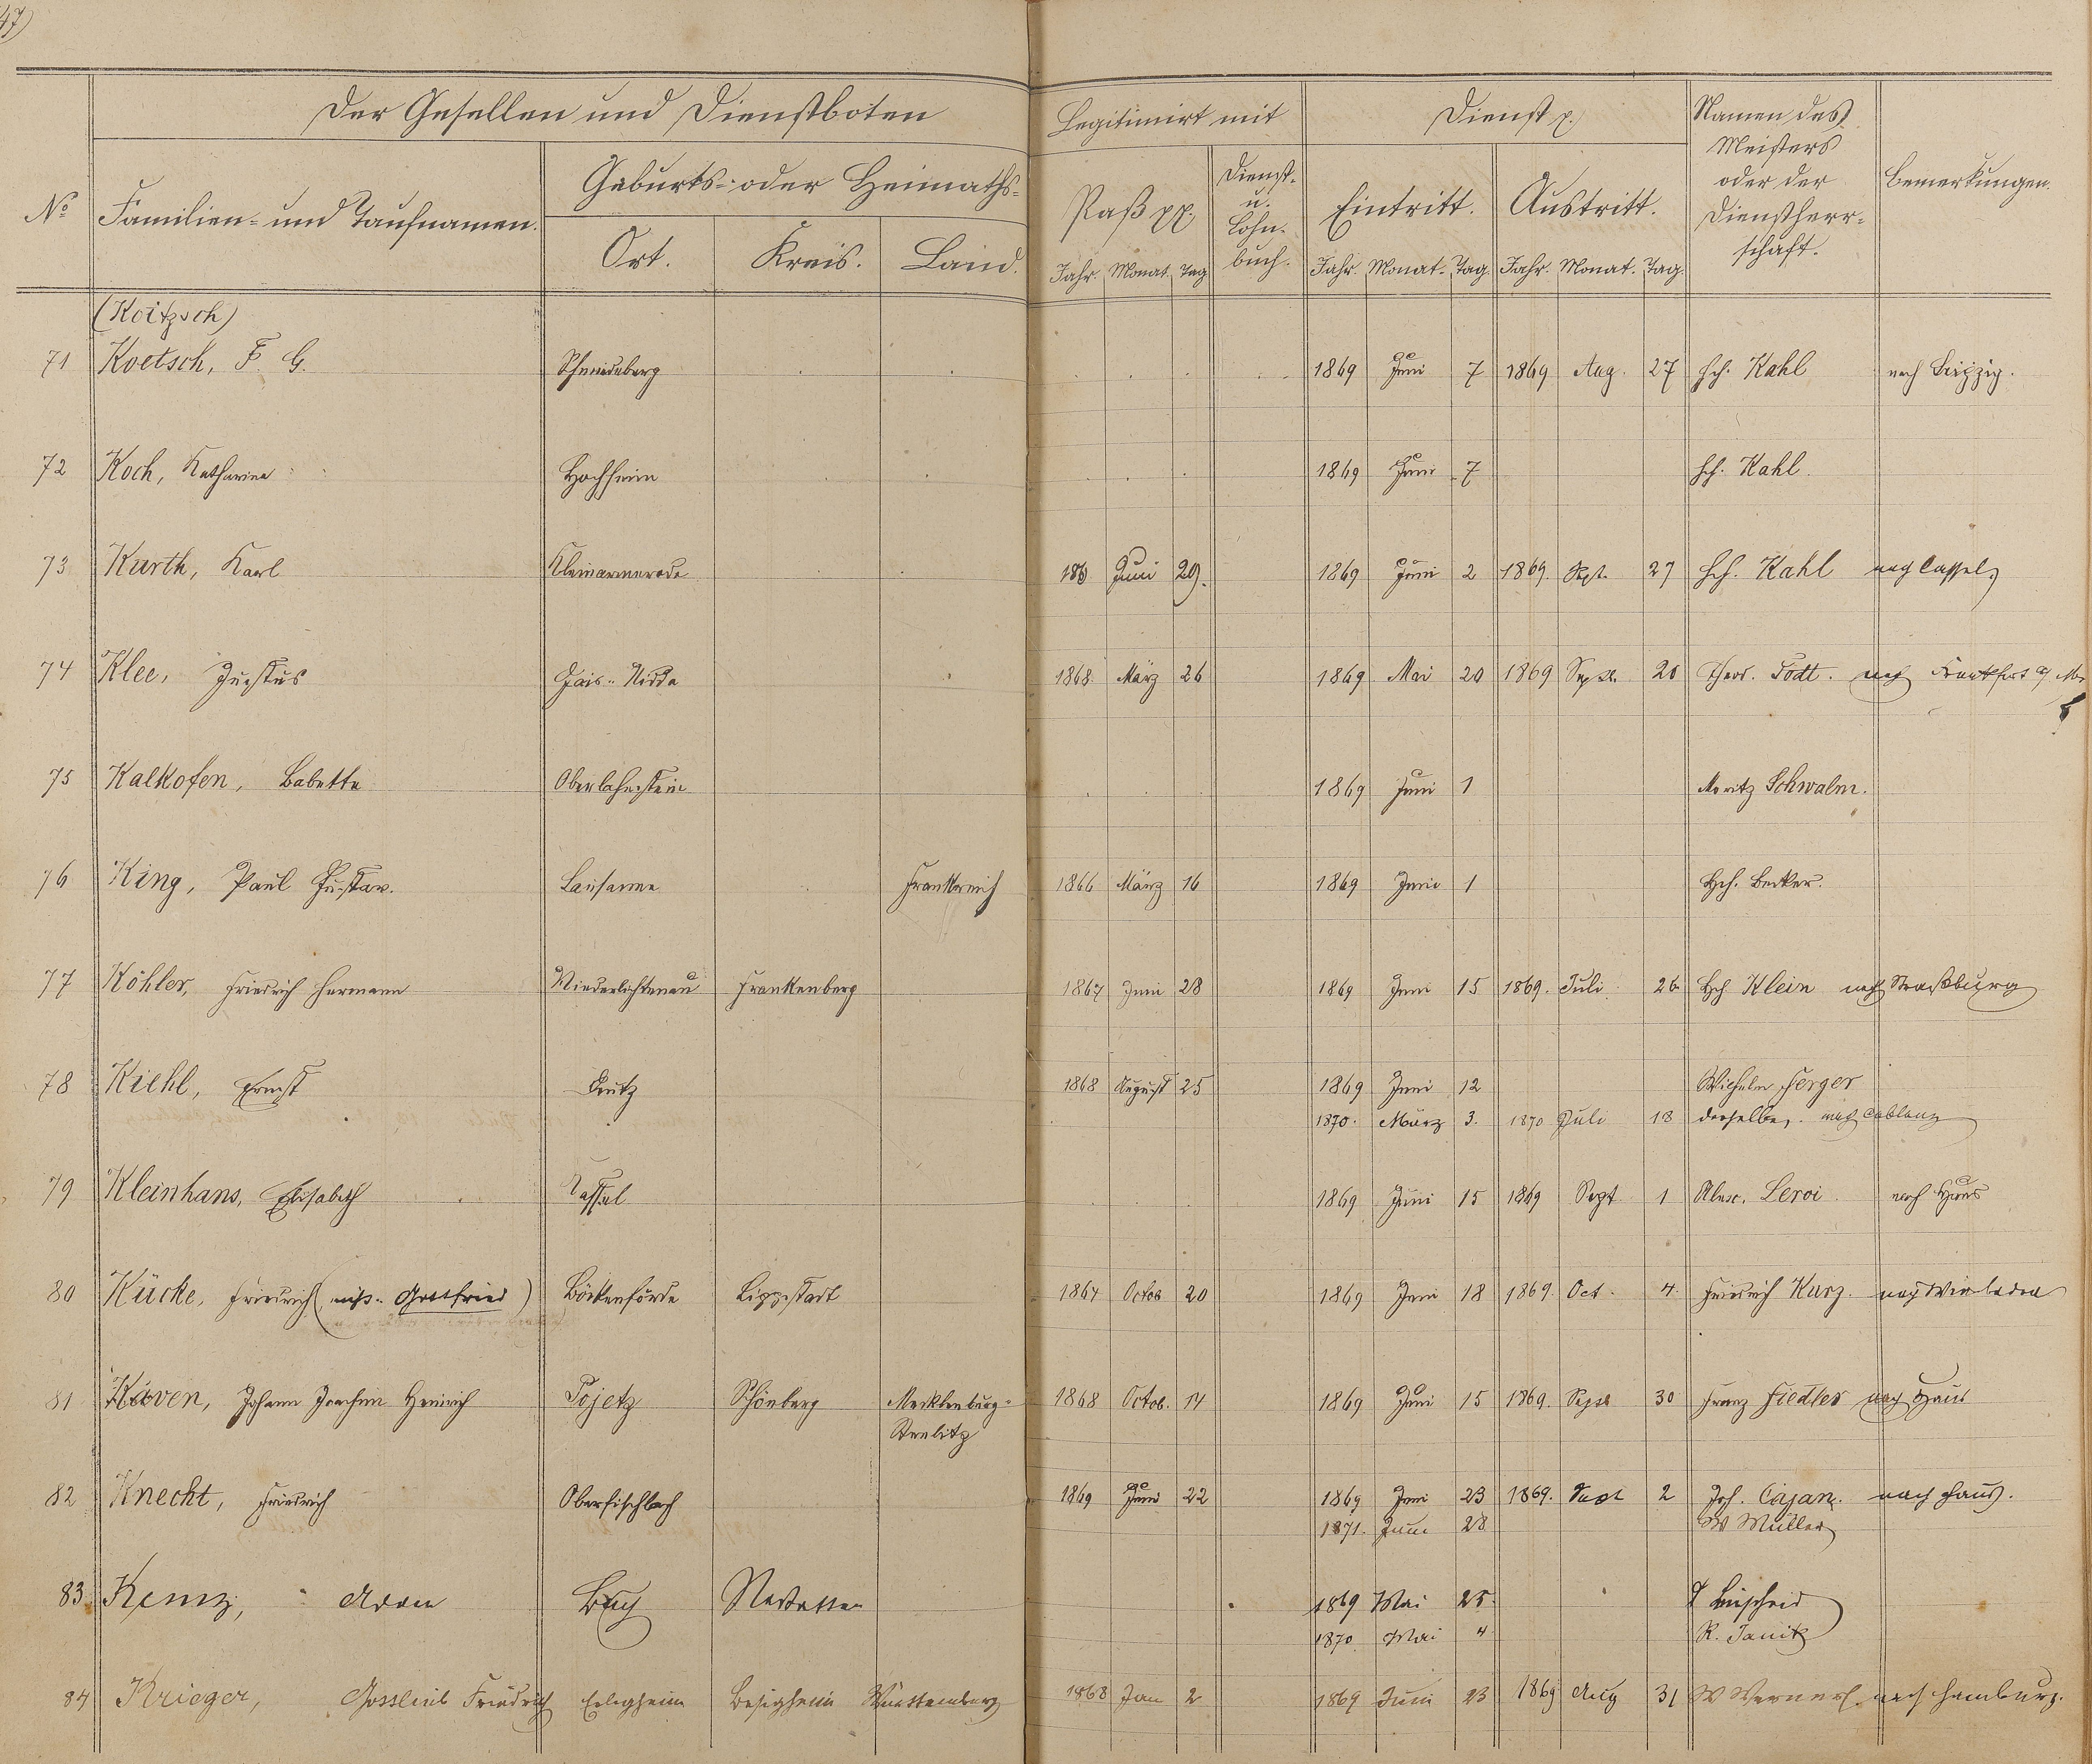 47)
Der Gesellen und Dienstboten
Legitimirt mit
Dienst p.
Namen des Meisters oder der Dienstherr=schaft.
Bemerkungen.
No
Familien- und Taufnamen.
Geburts- oder Heimaths=
Ort. Kreis. Land.
Paß pp.
Dienst- u. Lohn-buch.
Eintritt. Austritt.
Jahr. Monat. Tag Jahr. Monat. Tag. Jahr. Monat. Tag.
(Koitzsch)
71 Koetsch, F. G. Schneeberg 1869 Juni 7 1869 Aug. 27 Hch. Kahl nach Leipzig.
72 Koch, Katharina Hochheim 1869 Juni 7 Hch. Kahl.
73 Kurth, Karl Kleinarmerode Juni 29. 1869 Juni 2 1869. Sept. 27 Hch. Kahl nach Cassel
74 Klee, Justus Gais-Nidda 1868 März 26 1869 Mai 20 1869 Sept. 20 Theod. Todt. nach Frankfurt a/M.
75 Kalkofen, Babette Oberlahnstein 1869 Juni 1 Moritz Schwalm.
76 King, Paul Gustav. Lausanne Frankreich 1866 März 16 1869 Juni 1 Hch. Becker.
77 Köhler, Friedrich Hermann Niederlichtenau Frankenberg 1867 Juni 28 1869 Juni 15 1869. Juli 26 Hch Klein nach Straßburg
78 Kiehl, Ernst Deutz 1868 August 25 1869 Juni 12 Wilhelm Ferger
1870. März 3. 1870 Juli 18 derselbe. nach Coblenz
79 Kleinhans, Elisabeth Cassel 1869 Juni 15 1869 Sept 1 Alex. Leroi. nach Haus
80 Kücke, Friedrich (Gottfried) Böckenförde Lippstadt 1867 Octob 20 1869 Juni 18 1869. Oct. 4. Friedrich Kurz. nach Wiesbaden
81 Käven, Johann Joachim Heinrich Pojetz Schönberg Mecklenburg-Strelitz 1868 Octob. 14 1869 Juni 15 1869. Sept 30 Franz Fiedler nach Haus
82 Knecht, Friedrich Oberfischbach 1869 Juni 22 1869 Juni 23 1869. Sept 2 Jos. Cajan. nach Haus.
1871. Juni 28 W Müller
83 Kemz, Adam Buch Nastätten 1869 Mai 25.
1870 Mai 4 R. Janik
84 Krieger, Gottlieb Friedrich Erligheim Besigheim Württemberg 1868 Jan 2 1869 Juni 23 1869 Aug 31 W Werner. nach Hamburg.